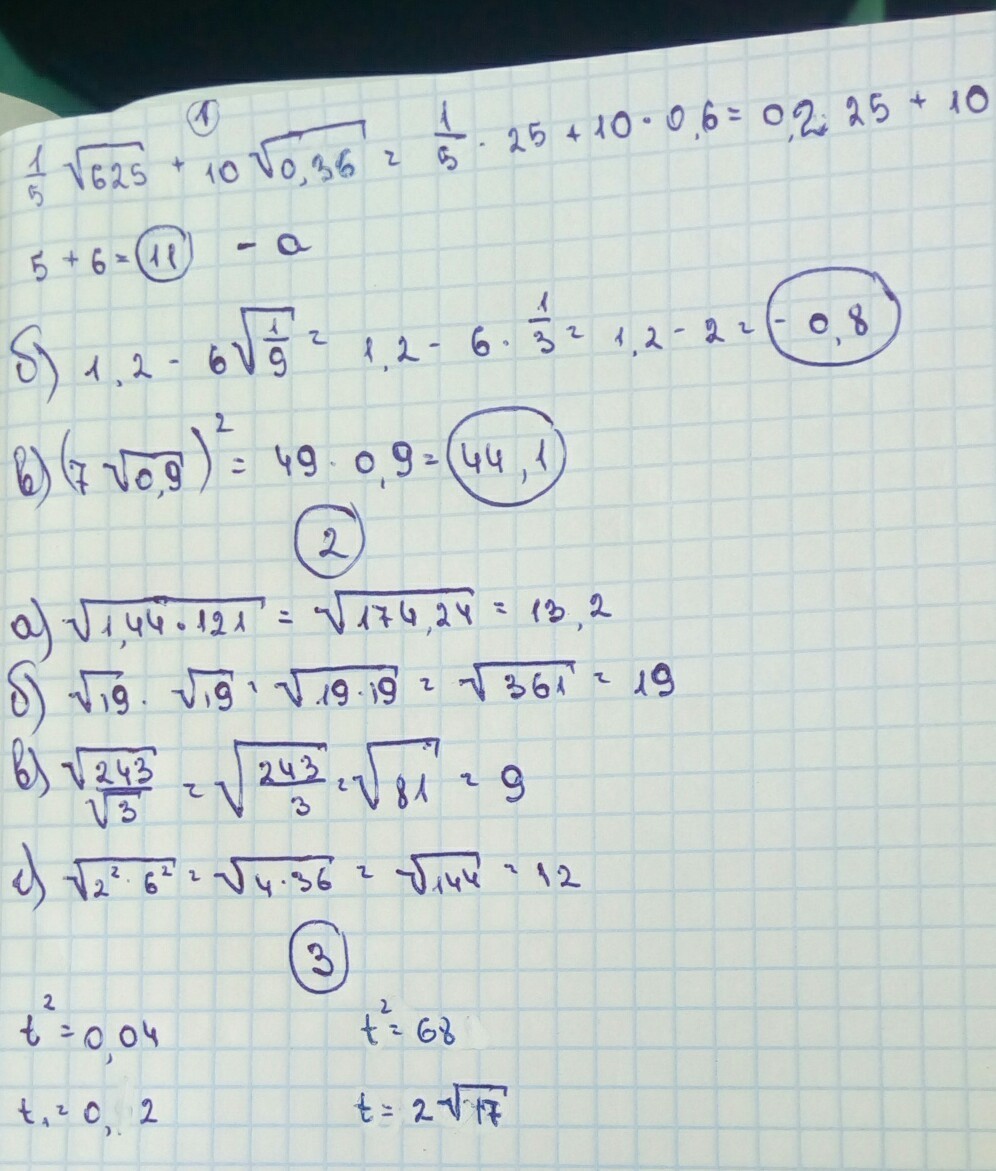 ①
1/5 √625 + 10 √0,36 = 1/5 · 25 + 10 · 0,6 = 0,2 · 25 + 10
5 + 6 = 11 - а
б) 1,2 - 6 √(1/9) = 1,2 - 6 · 1/3 = 1,2 - 2 = - 0,8
в) (7 √0,9)² = 49 · 0,9 = 44,1
②
а) √(1,44 · 121) = √174,24 = 13,2
б) √19 · √19 = √(19 · 19) = √361 = 19
в) √243/√3 = √(243/3) = √81 = 9
г) √(2² · 6²) = √(4 · 36) = √144 = 12
③
t² = 0,04 t² = 68
t₁ = 0,2 t = 2 √17